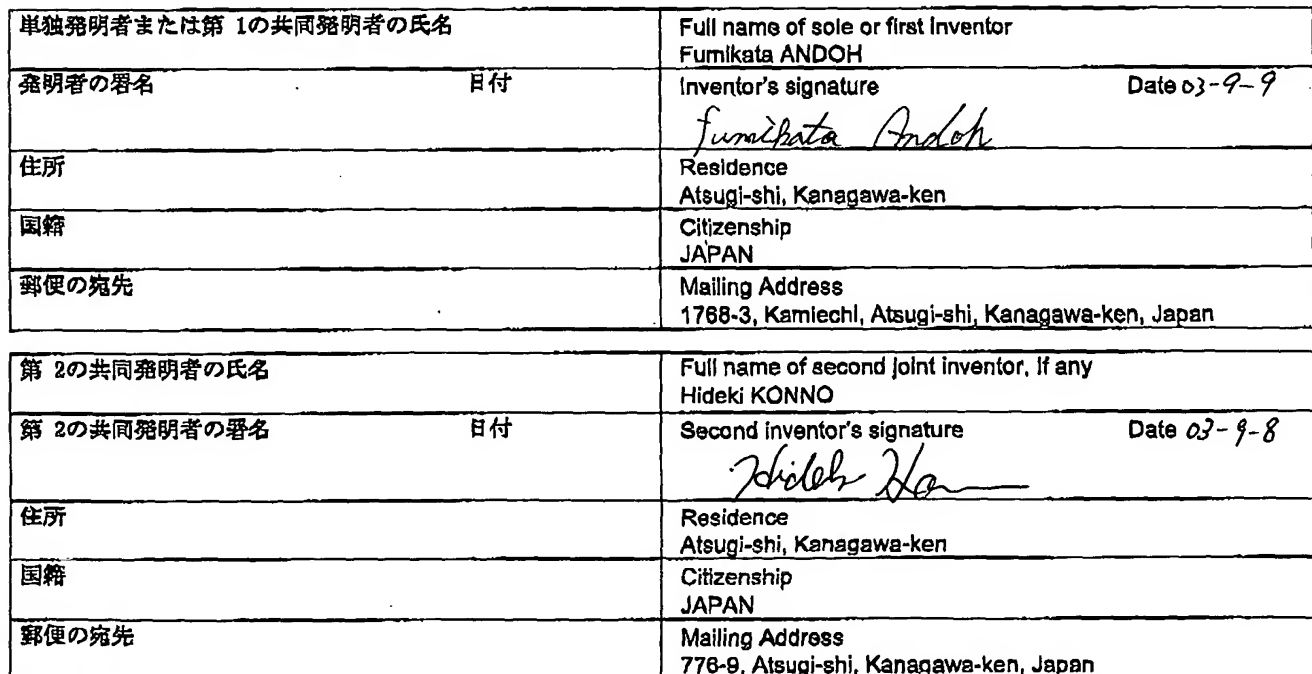 単独発明者または第 1の共同発明者の氏名
Full name of sole or first inventor
Fumikata ANDOH
発明者の署名 日付
Inventor's signature Date 03-9-9
Fumikata Andoh
住所
Residence
Atsugi-shi, Kanagawa-ken
国籍
Citizenship
JAPAN
郵便の宛先
Mailing Address
1768-3, Kamiechi, Atsugi-shi, Kanagawa-ken, Japan
第 2の共同発明者の氏名
Full name of second joint inventor, if any
Hideki KONNO
第 2の共同発明者の署名 日付
Second inventor's signature Date 03-9-8
住所
Residence
Atsugi-shi, Kanagawa-ken
国籍
Citizenship
JAPAN
郵便の宛先
Mailing Address
776-9, Atsugi-shi, Kanagawa-ken, Japan